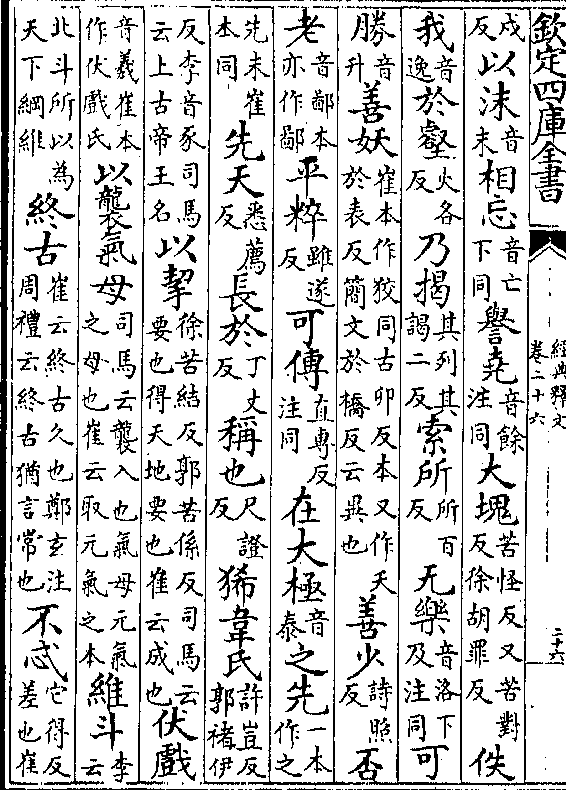 欽定四庫全書
經典釋文
卷二十六
二十六
戍反以沫音末相忘音亡下同譽堯音餘注同大塊苦怪反又苦對反徐胡罪反佚
我音逸於壑火各反乃揭其列其謁二反索所所百反无樂音洛下及注同可
勝音升善妖崔本作狡同古卯反本又作夭於表反簡文於橋反云異也善少詩照反否
老音鄙本亦作鄙平粹雖遂反可傳直専反注同在大極音泰之先一本作之
先未崔本同先天悉薦反長於丁丈反稱也尺證反狶韋氏許豈反郭褚伊
反李音豕司馬云上古帝王名以挈徐苦結反郭苦係反司馬云要也得天地要也崔云成也伏戲
音羲崔本作伏戲氏以襲氣母司馬云襲入也氣母元氣之母也崔云取元氣之本維斗李云
北斗所以為天下綱維終古崔云終古久也鄭玄注周禮云終古猶言常也不忒它得反差也崔